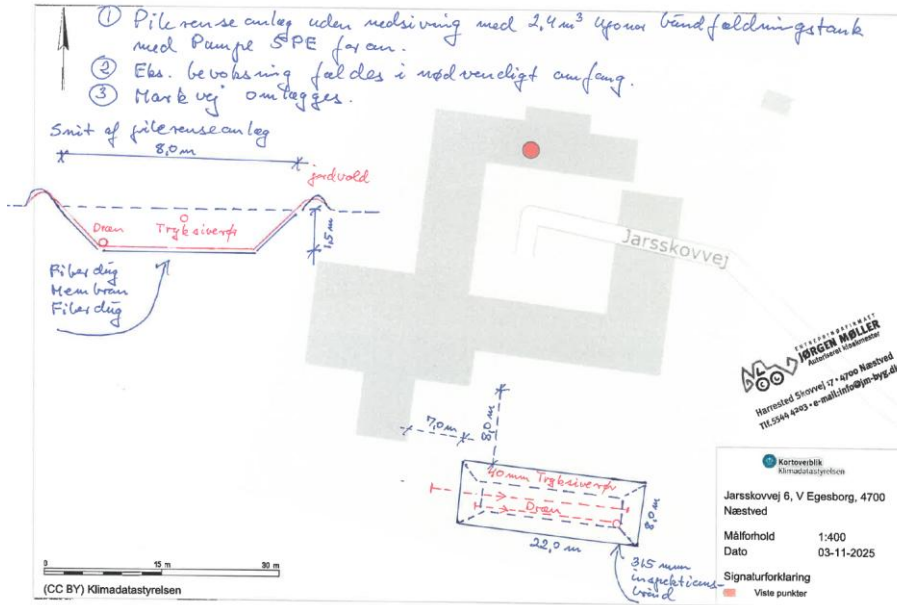 ① Pilerenseanlæg uden nedsivning med 2,4 m³ bundfældningstank
med Pumpe 5PE foran.
② Eks. bevoksning fældes i nødvendigt omfang.
③ Markvej omlægges.
Snit af pilerenseanlæg
8,0 m
jordvold
Dræn
Tryksiverør
1,5 m
Fiberdug
Membran
Fiberdug
Jarsskovvej
ENTREPRENØRFIRMAET
JØRGEN MØLLER
Autoriseret kloakmester
Harrested Skovvej 17 • 4700 Næstved
Tlf. 5544 4203 • e-mail: info@jm-byg.dk
7,0 m
8,0 m
40 mm Tryksiverør
Dræn
8,0 m
22,0 m
315 mm
inspektions-
brønd
Kortoverblik
Klimadatastyrelsen
Jarsskovvej 6, V Egesborg, 4700
Næstved
Målforhold 1:400
Dato 03-11-2025
Signaturforklaring
Viste punkter
0 15 m 30 m
(CC BY) Klimadatastyrelsen